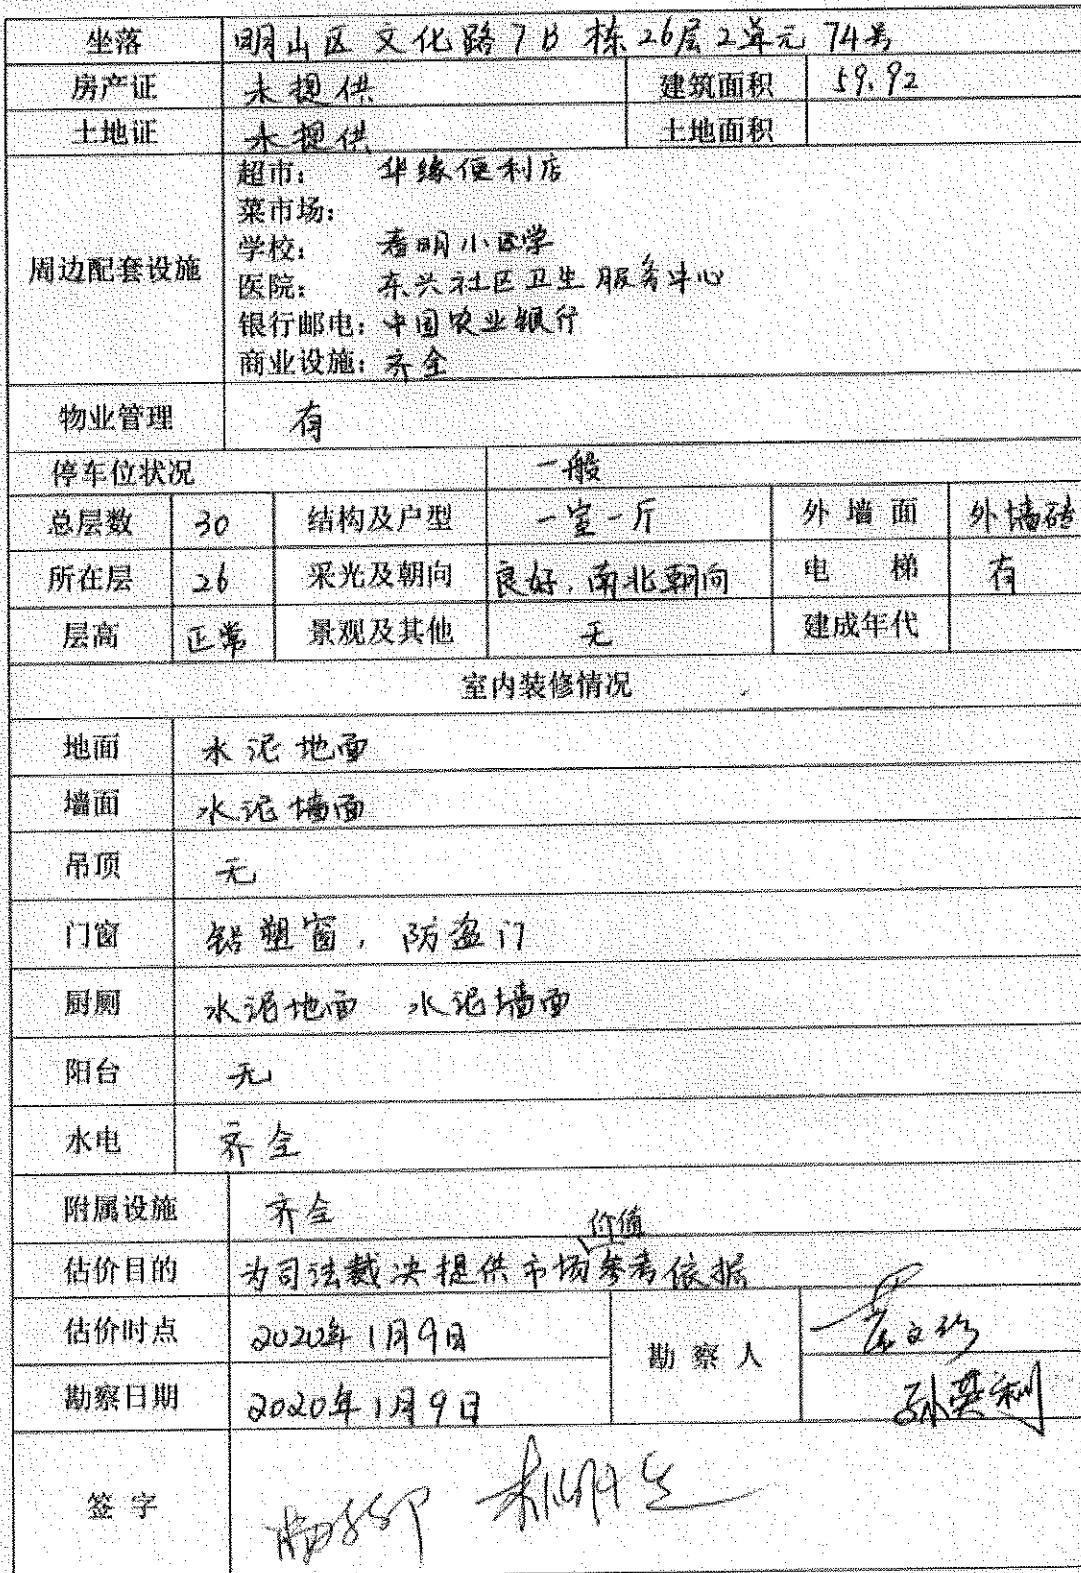 坐落 明山区文化路7B栋26层2单元74号
房产证 未提供 建筑面积 59.92
土地证 未提供 土地面积
周边配套设施
超市: 华缘便利店
菜市场:
学校: 春明小区学
医院: 东兴社区卫生服务中心
银行邮电: 中国农业银行
商业设施: 齐全
物业管理 有
停车位状况 一般
总层数 30 结构及户型 一室一厅 外墙面 外墙砖
所在层 26 采光及朝向 良好,南北朝向 电梯 有
层高 正常 景观及其他 无 建成年代
室内装修情况
地面 水泥地面
墙面 水泥墙面
吊顶 无
门窗 铝塑窗,防盗门
厨厕 水泥地面 水泥墙面
阳台 无
水电 齐全
附属设施 齐全
估价目的 为司法裁决提供市场价值参考依据
估价时点 2020年1月9日 勘察人
勘察日期 2020年1月9日 孙英利
签字